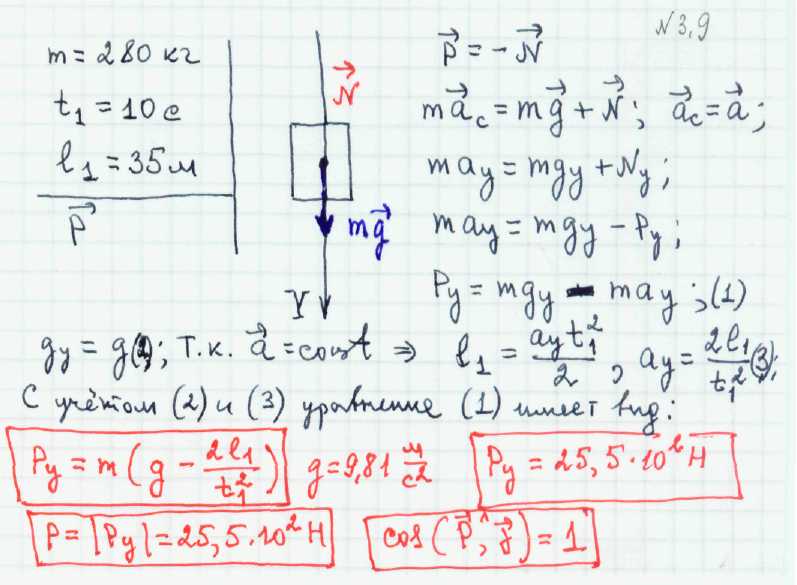 N3,9
m = 280 кг
t₁ = 10 с
l₁ = 35 м
P⃗
N⃗
mg⃗
Y
P⃗ = - N⃗
ma⃗c = mg⃗ + N⃗; a⃗c = a⃗;
may = mgy + Ny;
may = mgy - Py;
Py = mgy - may; (1)
gy = g(2); т.к. a⃗ = const ⇒ l₁ = ayt₁²/2, ay = 2l₁/t₁² (3);
С учётом (2) и (3) уравнение (1) имеет вид:
Py = m(g - 2l₁/t₁²) g = 9,81 м/с² Py = 25,5·10² Н
P = |Py| = 25,5·10² Н cos(P⃗,^j⃗) = 1